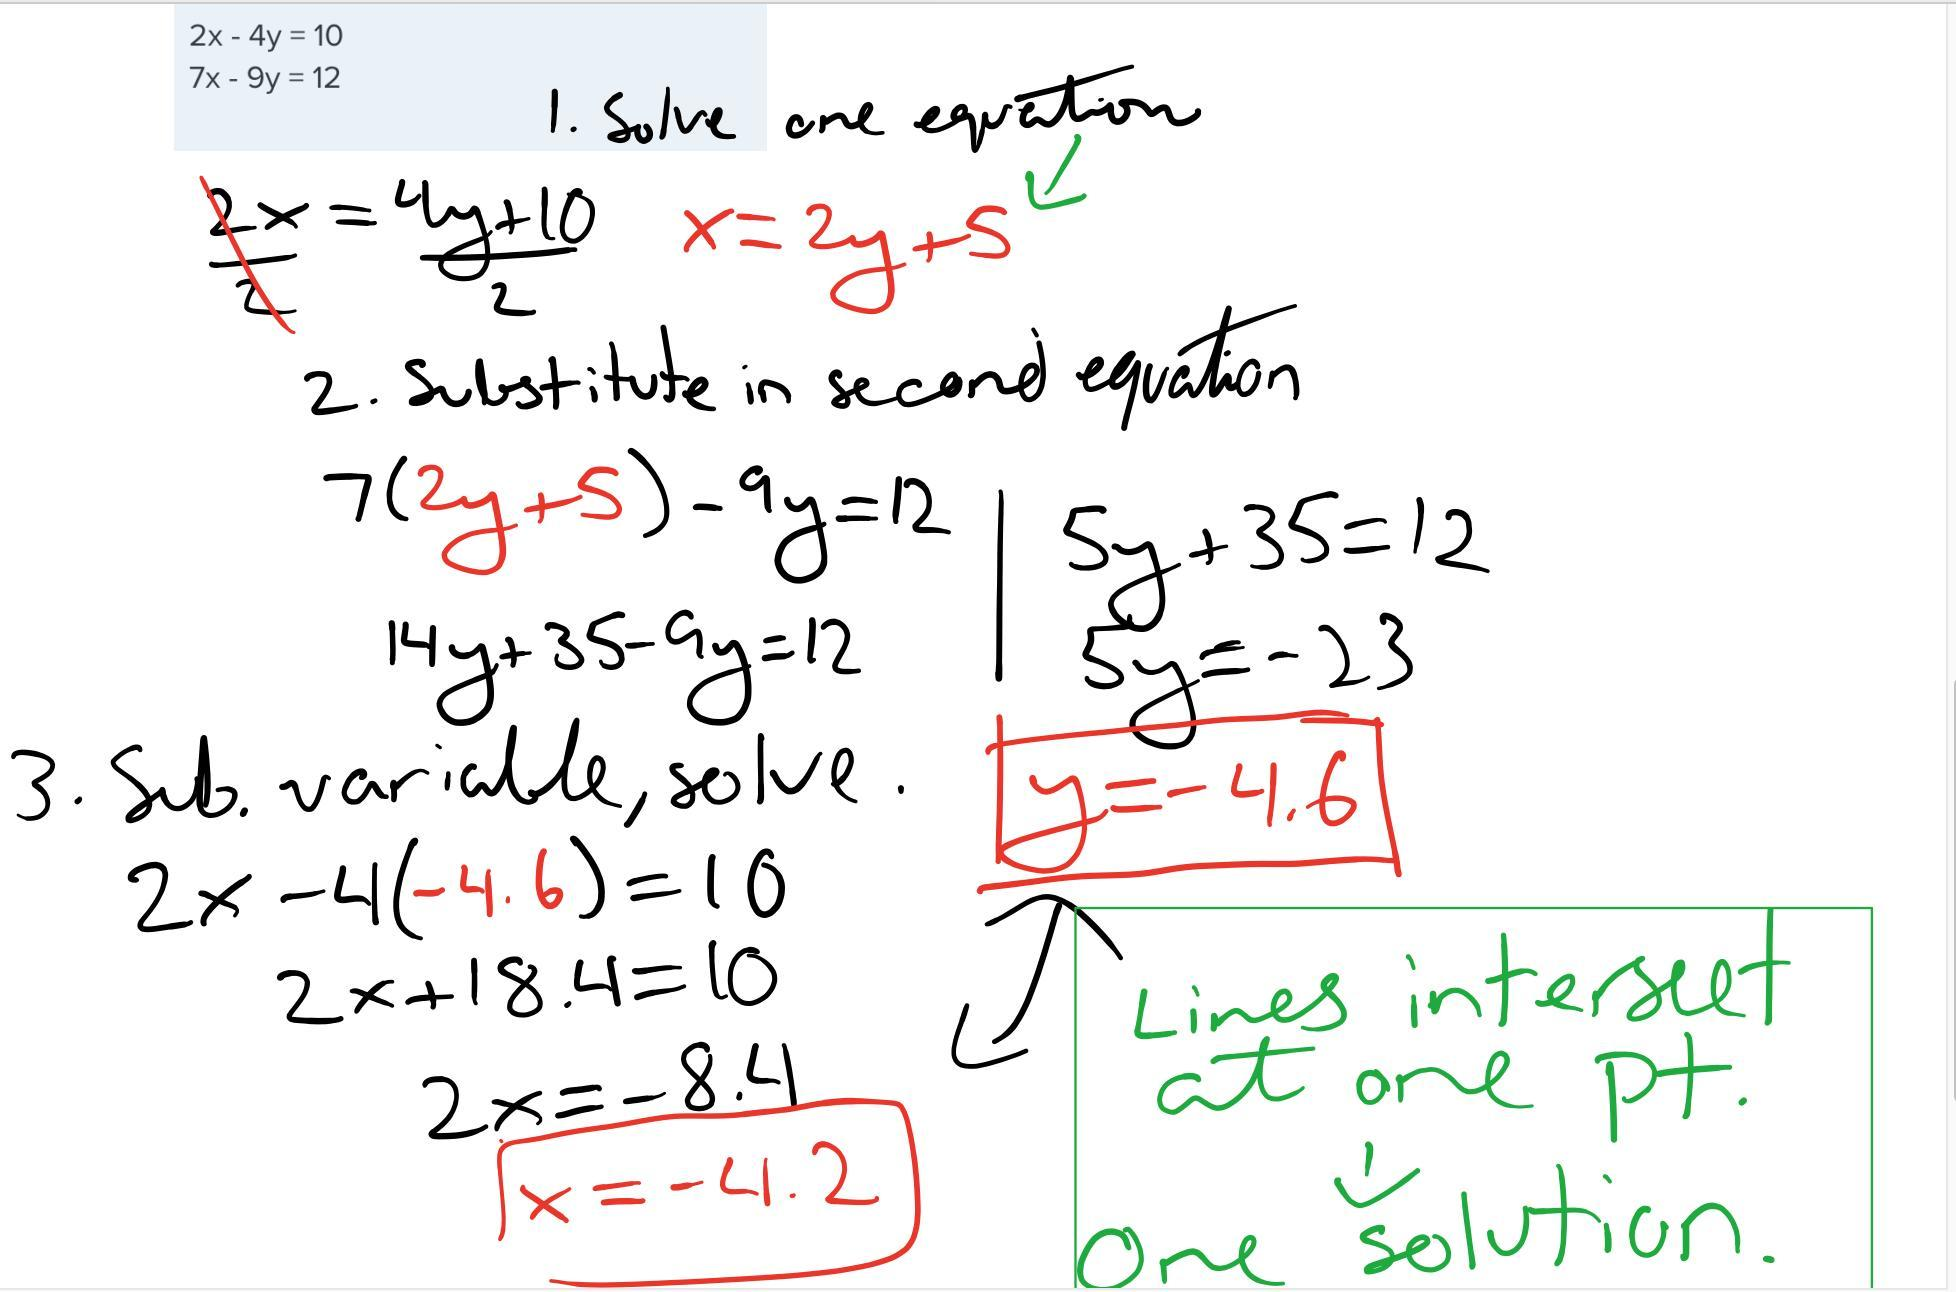 2x - 4y = 10
7x - 9y = 12
1. Solve one equation
2x = 4y+10
2 2
x = 2y+5
2. Substitute in second equation
7(2y+5) - 9y = 12
14y+35-9y=12
5y+35=12
5y=-23
y=-4.6
3. Sub. variable, solve.
2x -4(-4.6) = 10
2x+18.4=10
2x=-8.4
x=-4.2
Lines intersect
at one pt.
One solution.